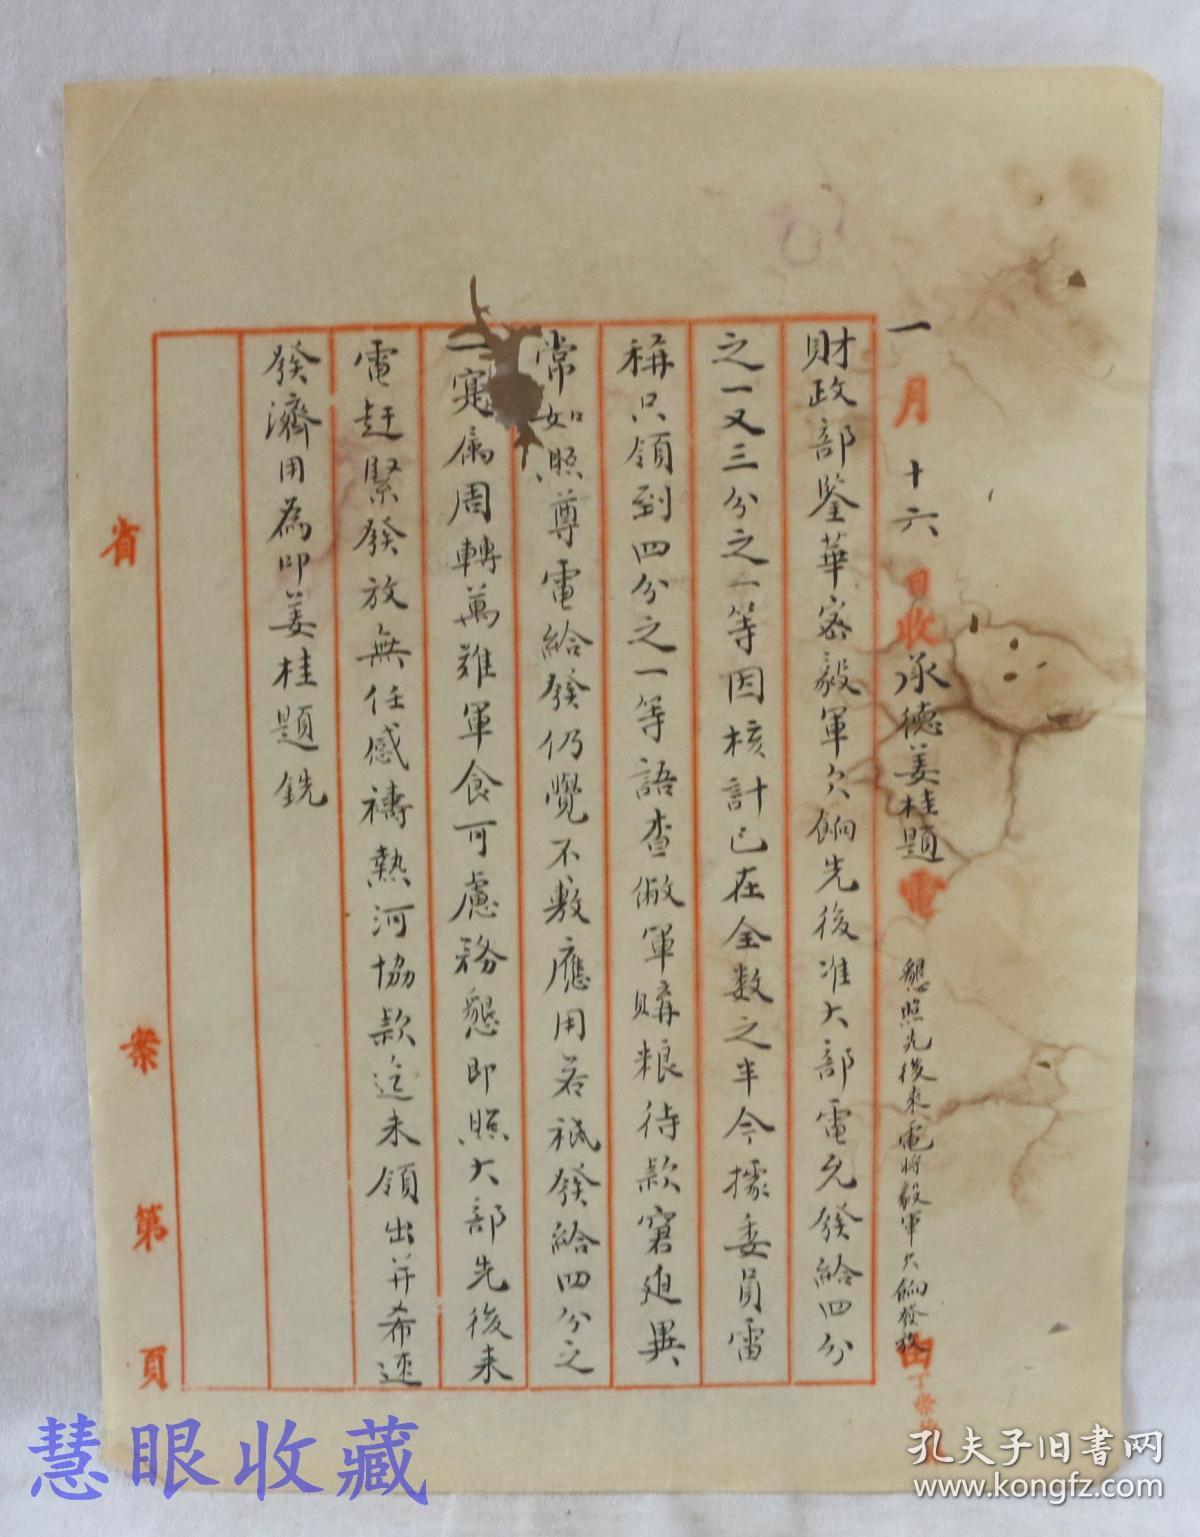 一月十六日收承德姜桂題電 懇照先後來電將毅軍欠餉發放由
財政部鑒華密毅軍欠餉先後准大部電允發給四分
之一又三分之一等因核計已在全數之半今據委員雷
稱只領到四分之一等語查敝軍購粮待款窘迫異
常如照尊電給發仍覺不敷應用若祇發給四分之
一寔屬周轉萬難軍食可慮務懇即照大部先後來
電赶緊發放無任感禱熱河協款迄未領出并希速
發濟用為叩姜桂題銑
省
第 頁
慧眼收藏
孔夫子旧书网
www.kongfz.com